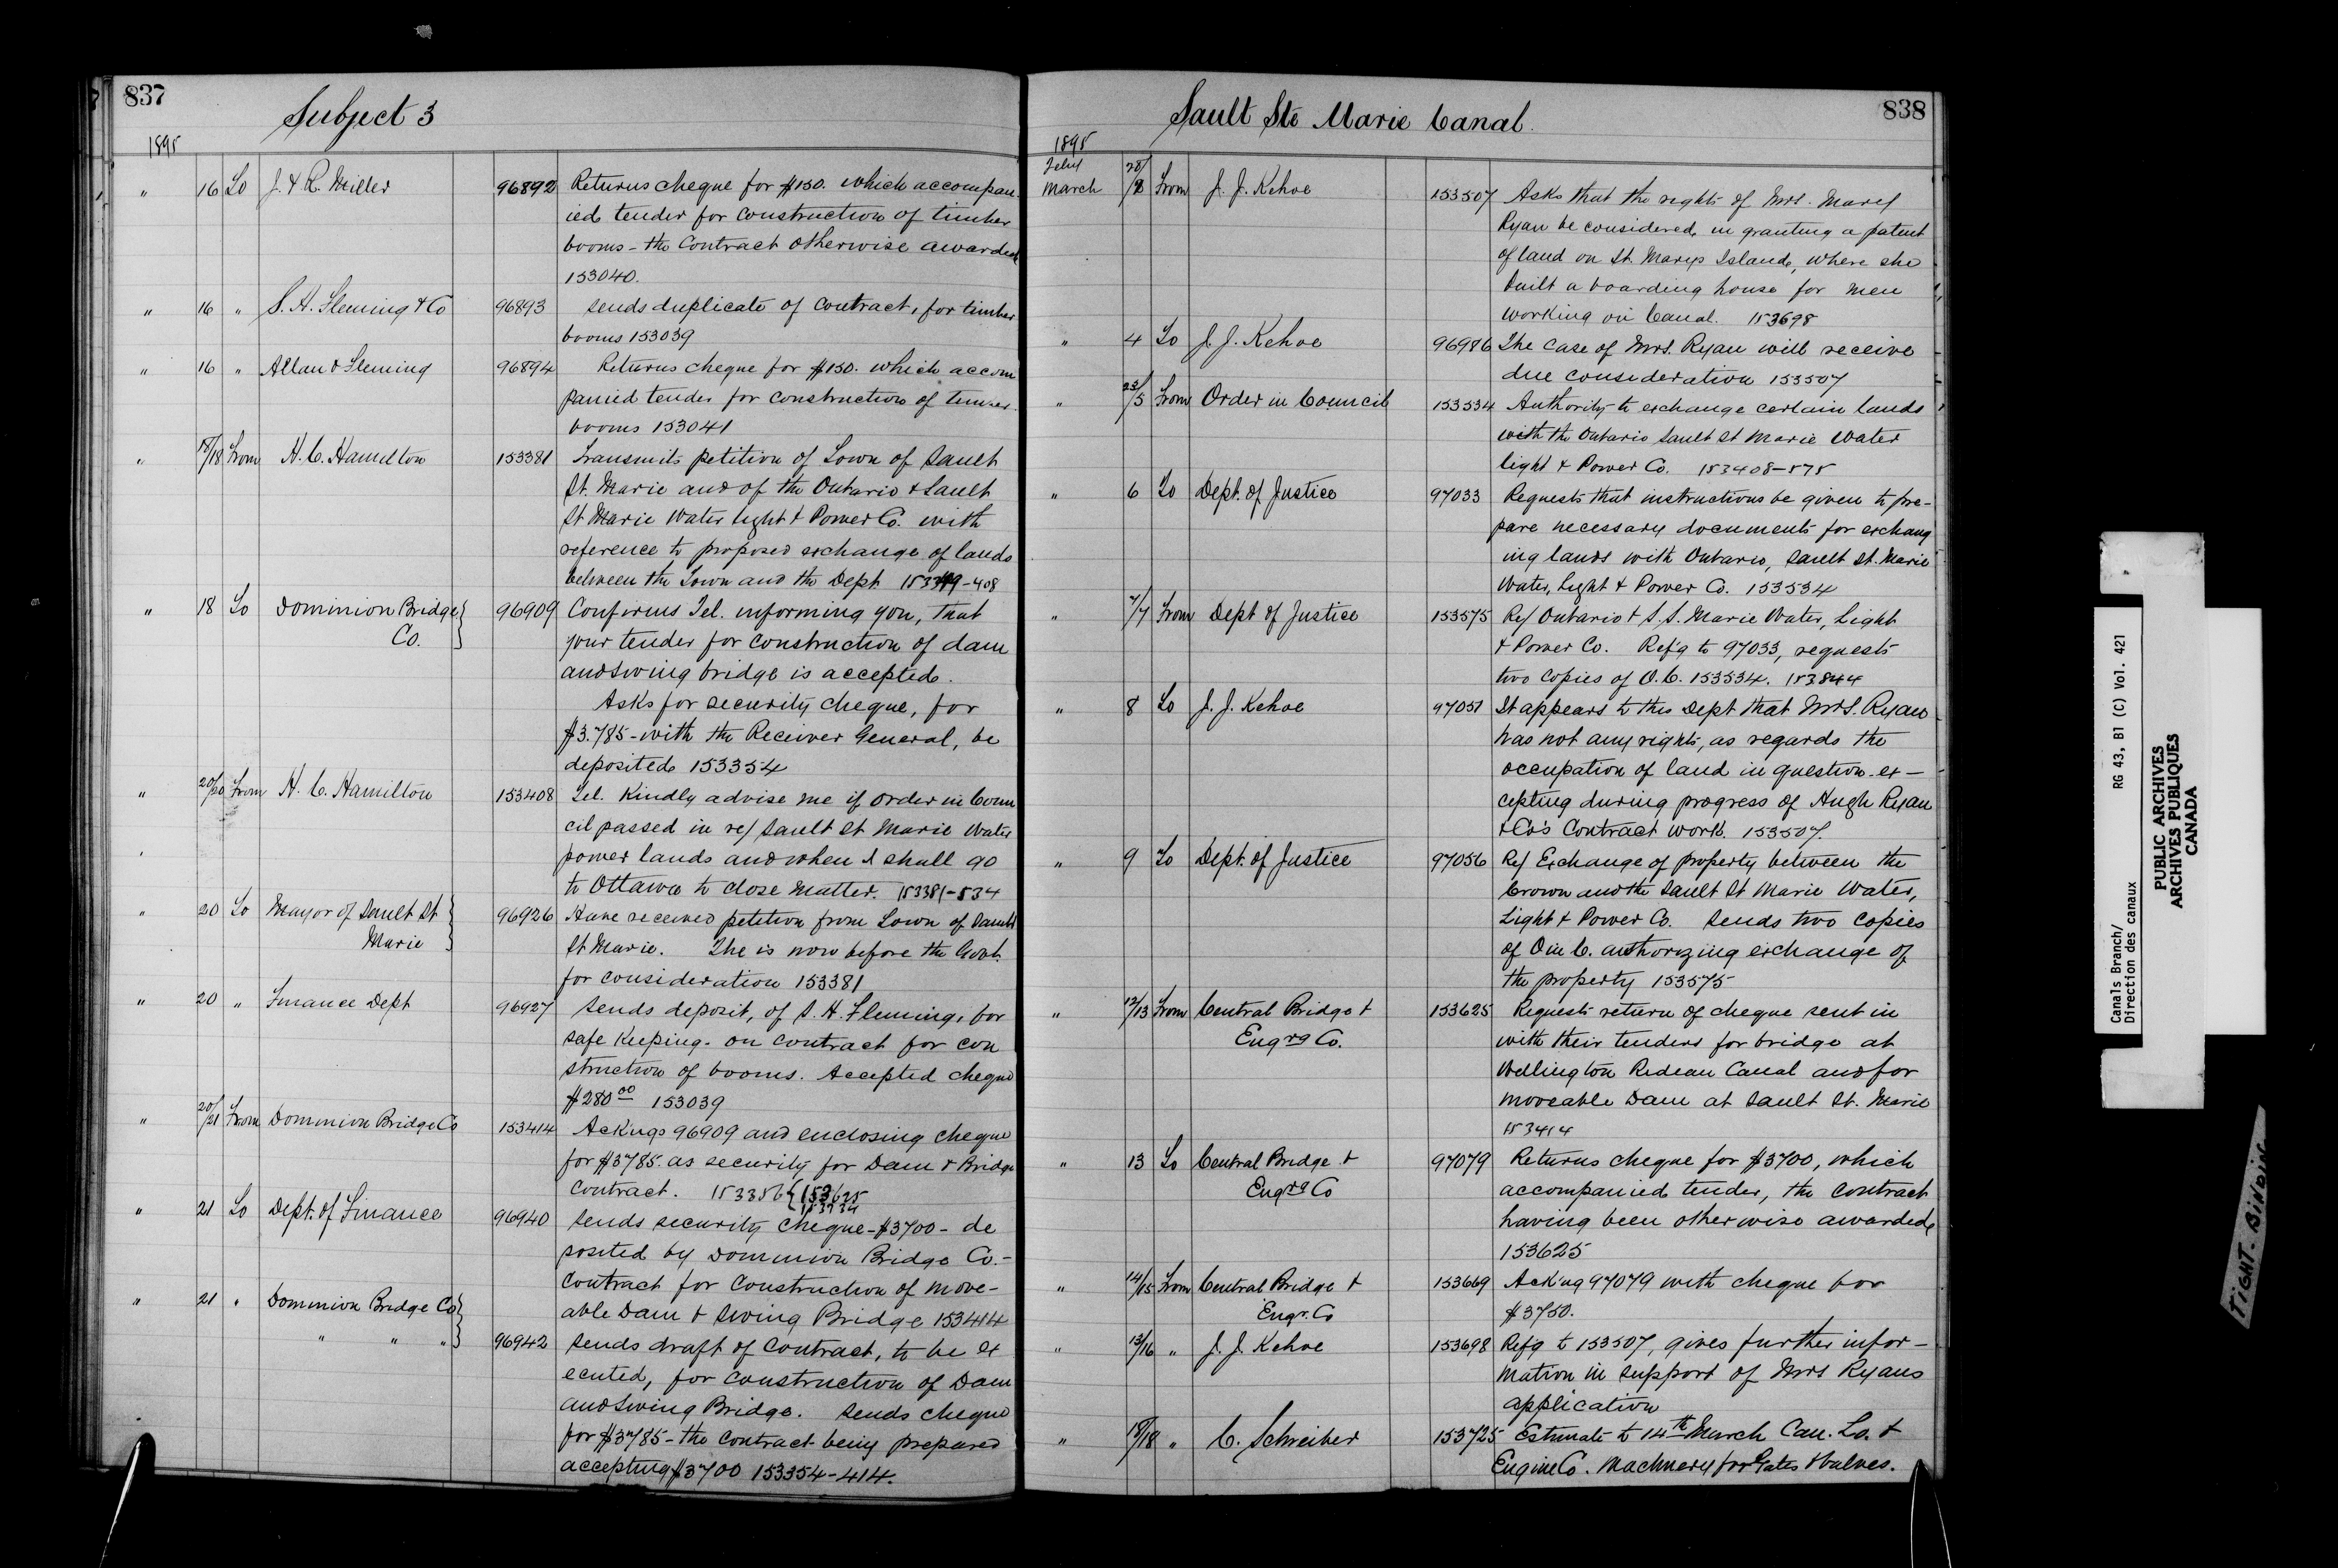 837
Subject 3
1895
" 16 To J. & R. Miller 96892 Returns cheque for $150. which accompan
ied tender for construction of timber
booms - the contract otherwise awarded
153040.
" 16 " S. H. Fleming & Co 96893 Sends duplicate of contract, for timber
booms 153039
" 16 " Allan & Fleming 96894 Returns cheque for $150. which accom
panied tender for construction of timber
booms 153041
" 18/18 From H. C. Hamilton 153381 Transmits petition of Town of Sault
St. Marie and of the Ontario & Sault
St Marie Water Light & Power Co. with
reference to proposed exchange of lands
between the Town and the Dept -408
" 18 To Dominion Bridge 96909 Confirms Tel. informing you, that
Co. your tender for construction of dam
and swing bridge is accepted.
Asks for security cheque, for
$3.785 - with the Receiver General, be
deposited 153354
" 20/20 From H. C. Hamilton 153408 Tel. Kindly advise me if order in Coun
cil passed in re/ Sault St Marie Water
power lands and when I shall go
to Ottawa to close matter. 153381-534
" 20 To Mayor of Sault St 96926 Have received petition from Town of Sault
Marie St Marie. The is now before the Govt.
for consideration 153381
" 20 " Finance Dept 96927 Sends deposit, of S. H. Fleming, for
safe keeping - on contract for con
struction of booms. Accepted cheque
$280 00 153039
" 20/21 From Dominion Bridge Co 153414 Ack'ngs 96909 and enclosing cheque
for $3785. as security for Dam & Bridge
contract. 153356 { 153625
" 21 To Dept. of Finance 96940 Sends security cheque - $3700 - de
posited by Dominion Bridge Co. -
Contract for construction of move-
able Dam & Swing Bridge 153414
" 21 " Dominion Bridge Co
" " " 96942 Sends draft of contract, to be ex
ecuted, for construction of Dam
and Swing Bridge. Sends cheque
for $3785 - the contract being prepared
accepting $3700 153354-414.
838
Sault Ste Marie Canal.
1895
Feby
March 28/2 From J. J. Kehoe 153507 Asks that the rights of Mrs. Mary
Ryan be considered, in granting a patent
of land on St. Marys Island, where she
built a boarding house for men
working on Canal. 153698
" 4 To J. J. Kehoe 96986 The case of Mrs. Ryan will receive
due consideration 153507
" 23/5 From Order in Council 153534 Authority to exchange certain lands
with the Ontario Sault St Marie Water
light & Power Co. 153408-575
" 6 To Dept. of Justice 97033 Requests that instructions be given to pre-
pare necessary documents for exchang
ing lands with Ontario, Sault St. Marie
Water, Light & Power Co. 153534
" 7/7 From Dept of Justice 153575 Re/ Ontario & S.S. Marie Water, Light
& Power Co. Ref'g to 97033, requests
two copies of O.C. 153534. 153844
" 8 To J. J. Kehoe 97051 It appears to this Dept that Mrs. Ryan
has not any rights, as regards the
occupation of land in question - ex-
cepting during progress of Hugh Ryan
& Co's Contract work. 153507.
" 9 To Dept. of Justice 97056 Re/ Exchange of property between the
Crown and the Sault St Marie Water,
Light & Power Co. Sends two copies
of O in C. authorizing exchange of
the property 153575
" 12/13 From Central Bridge & 153625 Requests return of cheque sent in
Eng'rg Co. with their tenders for bridge at
Wellington Rideau Canal and for
moveable Dam at Sault St. Marie
153414
" 13 To Central Bridge & 97079 Returns cheque for $3700, which
Eng'rg Co accompanied tender, the contract
having been otherwise awarded,
153625
" 14/15 From Central Bridge & 153669 Ack'ng 97079 with cheque for
Engr. Co $3750.
" 13/16 " J. J. Kehoe 153698 Ref'g to 153507, gives further infor-
mation in support of Mrs Ryans
application
" 18/18 " C. Schreiber 153725 Estimate to 14th March Can. Lo. &
Engine Co. Machinery for Gates & Valves.
Canals Branch/ RG 43, B1 (C) Vol. 421
Direction des canaux
PUBLIC ARCHIVES
ARCHIVES PUBLIQUES
CANADA
TIGHT BINDING